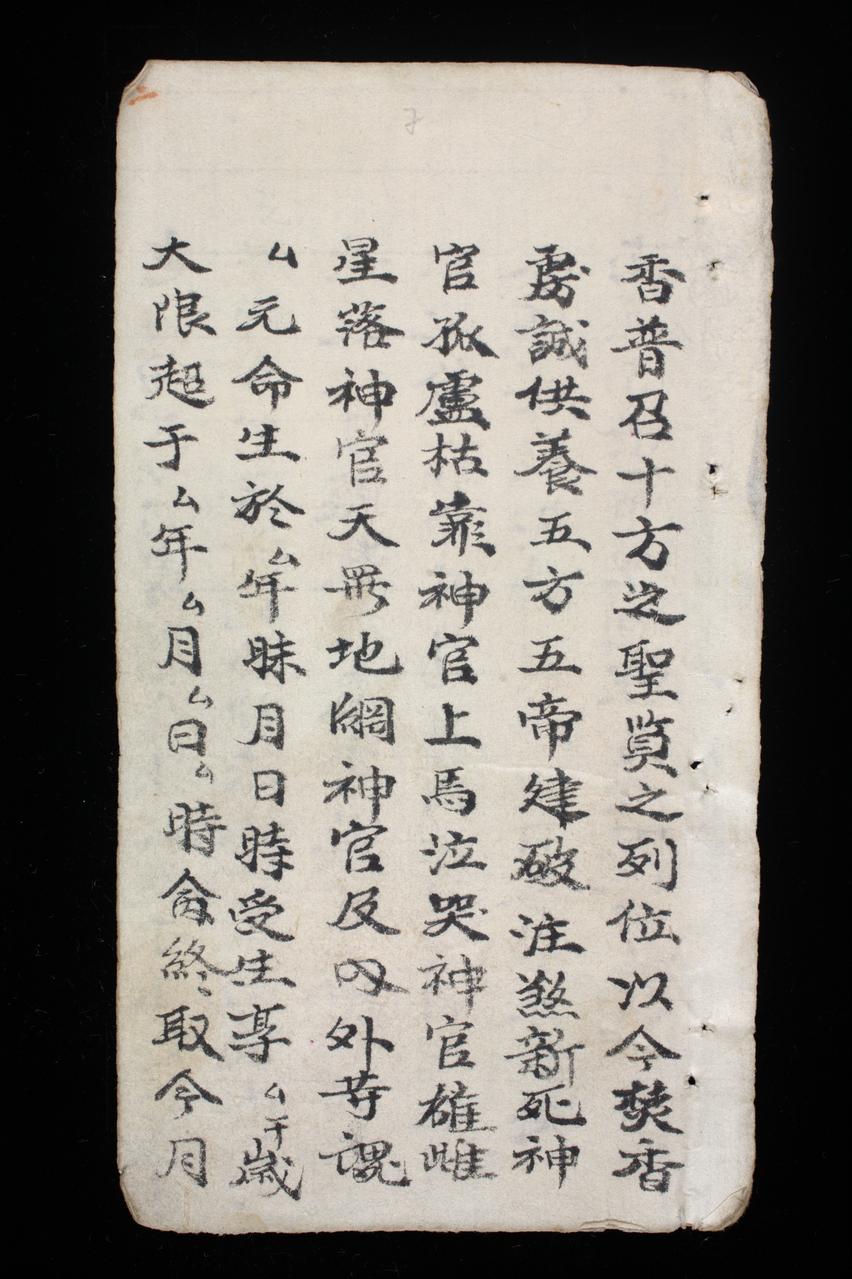 香普召十方之聖賢之列位以今焚香
虔誠供養五方五帝建破注煞新死神
官孤盧枯靠神官上馬泣哭神官雄雌
星落神官天羅地網神官及內外等䰟
厶元命生於厶年月日時受生享厶千歲
大限超于厶年厶月厶日厶時侖終取今月